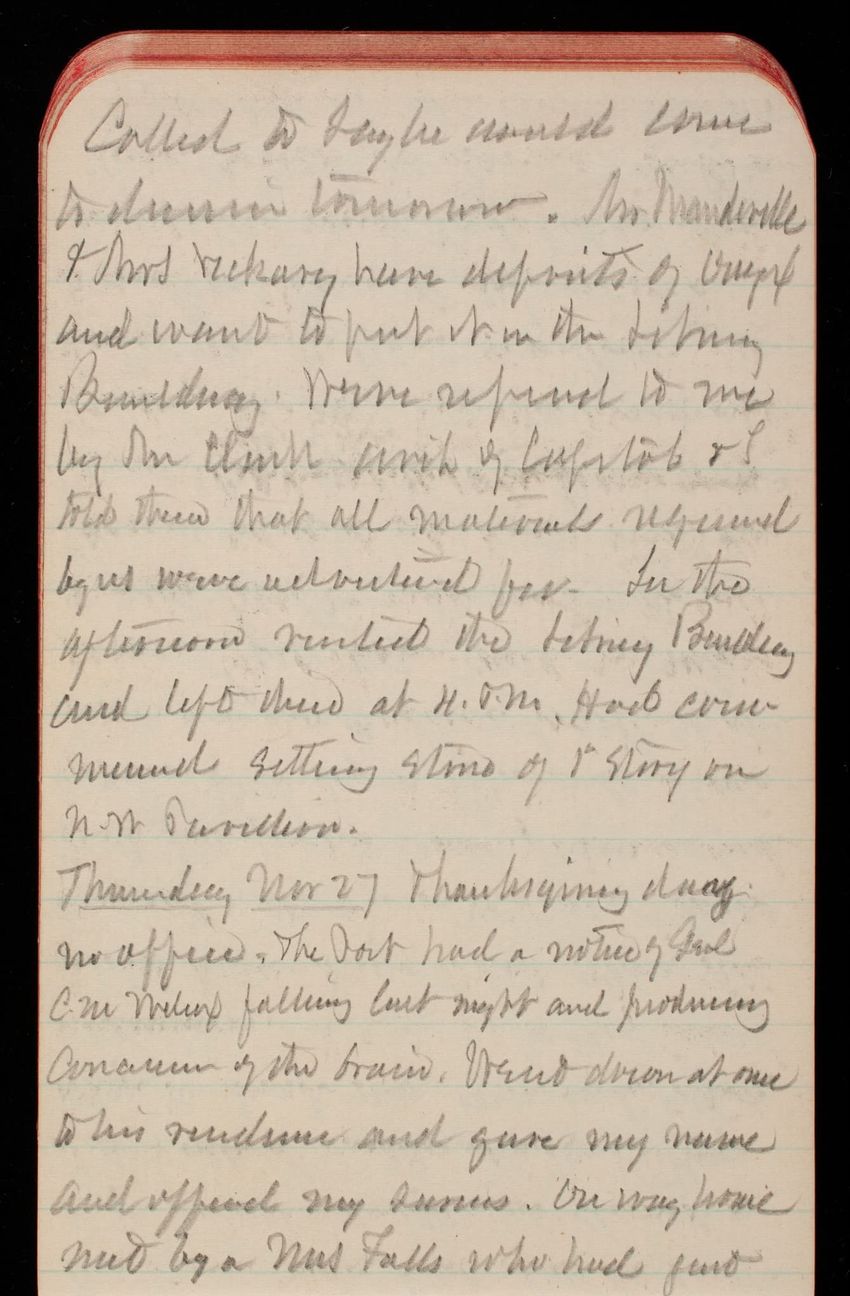 Called to say he would come
to dinner tomorrow. Mr Mandeville
& Mrs Vickary have deposits of Onyx
and want to put it in the Library
Building. Were referred to me
by Mr Clark arch of Capitol & I
told them that all materials required
by us were advertised for. In the
afternoon visited the Library Building
and left there at 4. P.M. Had com-
menced setting stone of 1st Story on
N.W Pavilion.
Thursday Nov 27 Thanksgiving day
no office. The Post had a notice of Genl
C.M Wilcox falling last night and producing
Concussion of the brain. Went down at once
to his residence and gave my name
and offered my services. On way home
met by a Mrs Falls who had just